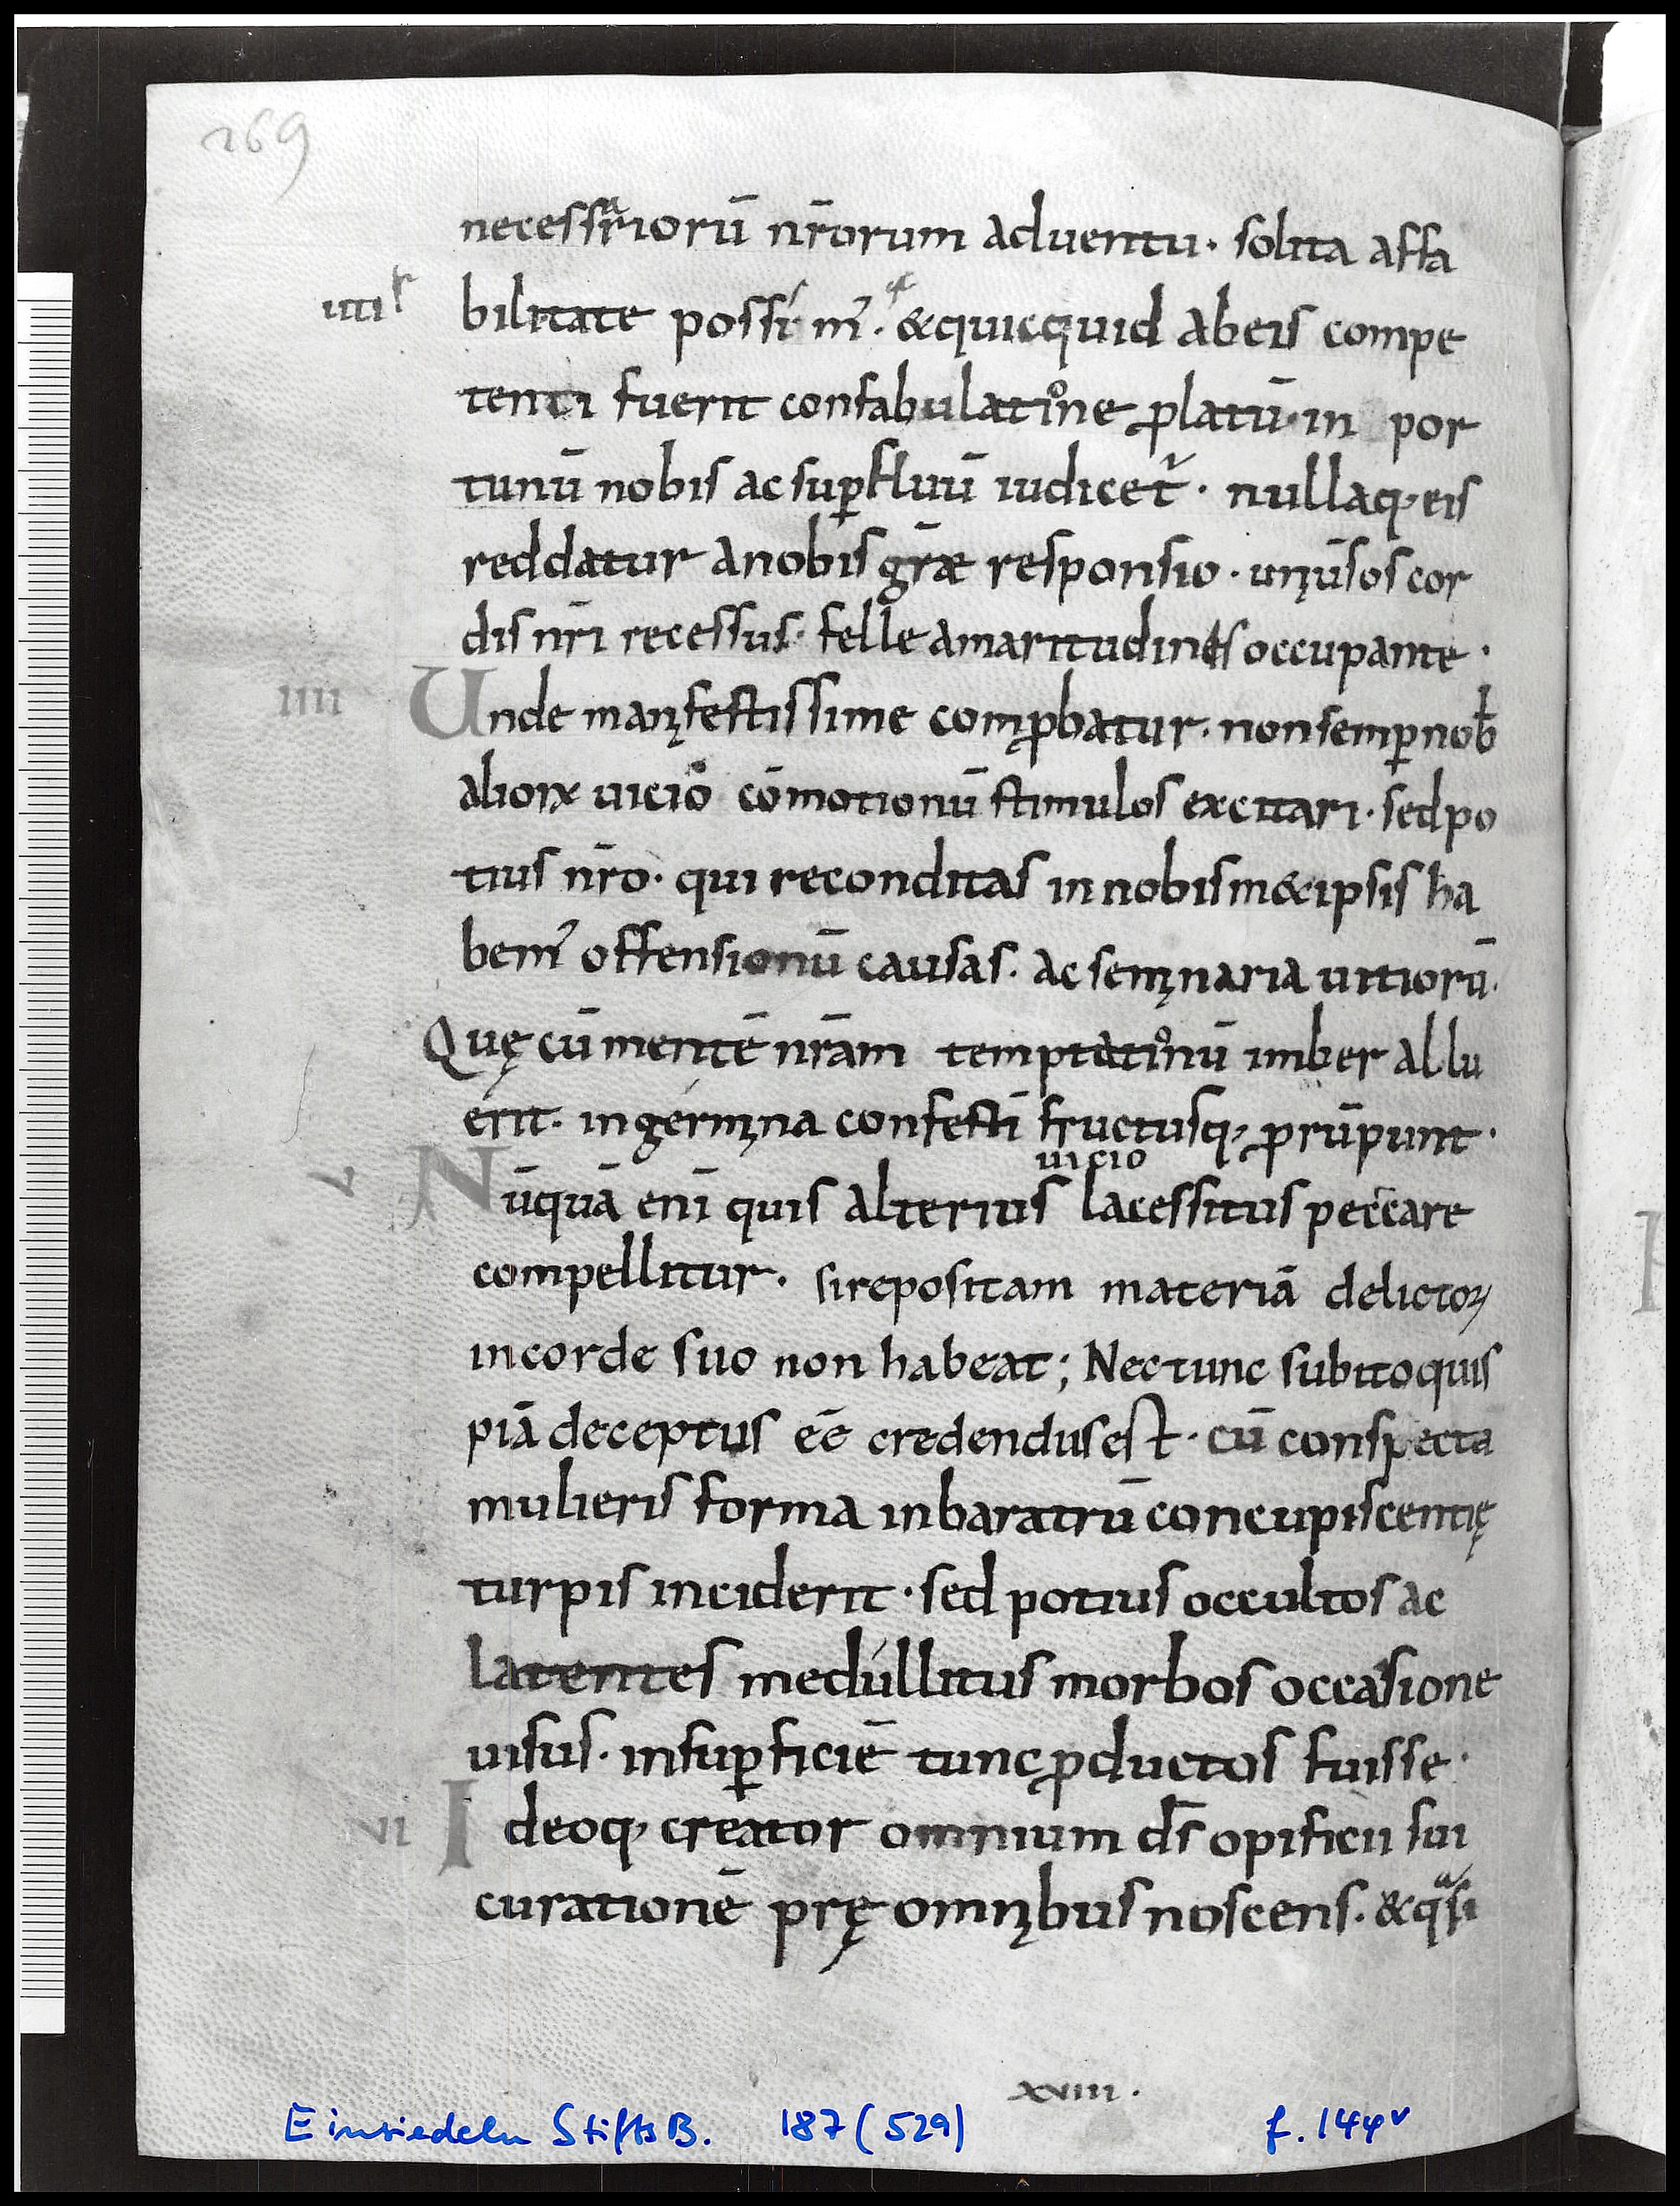 269
necessariorū nr̄orum aduentu· solita affa
uti bilitate possim᾽· &quicquid abeis compe
tenti fuerit confabulatione ꝓlatū· in por
tunū nobis ac suꝑfluū iudicet᷑· nullaq· eis
reddatur anobis gr̄ae responsio· uniūsos cor
dis nr̄i recessus· felle amaritudinis occupante·
iiii Unde manifestissime comꝓbatur· nonsemꝑ nob
alioꝝ uicio cōmotionū stimulos excitari· sedpo
tius nr̄o· qui reconditas innobism&ipsis ha
bem᾽ offensionū causas· ac seminaria uitiorū·
Quę cūmentē nr̄am temptationū imber allu
erit· ingermina confestī fructusq· ꝓrūpunt·
uicio
v Nūquā enī quis alterius lacessitus peccare
compellitur· sirepositam materiā delictoꝝ
incorde suo non habeat; Nectunc subitoquis
piā deceptus eē credendusest· cū conspecta
mulieris forma inbaratrū concupiscentię
turpis inciderit· sed potius occultos ac
latentes medúllitus morbos occasione
uisus· insuꝑficiē tunc ꝓductos fuisse·
vi Ideoq· creator omnium ds̄ opificii sui
curationē prę omnibus noscens· &qͣsi
xviiii·
Einsiedeln StiftsB. 187 (529) f. 144v